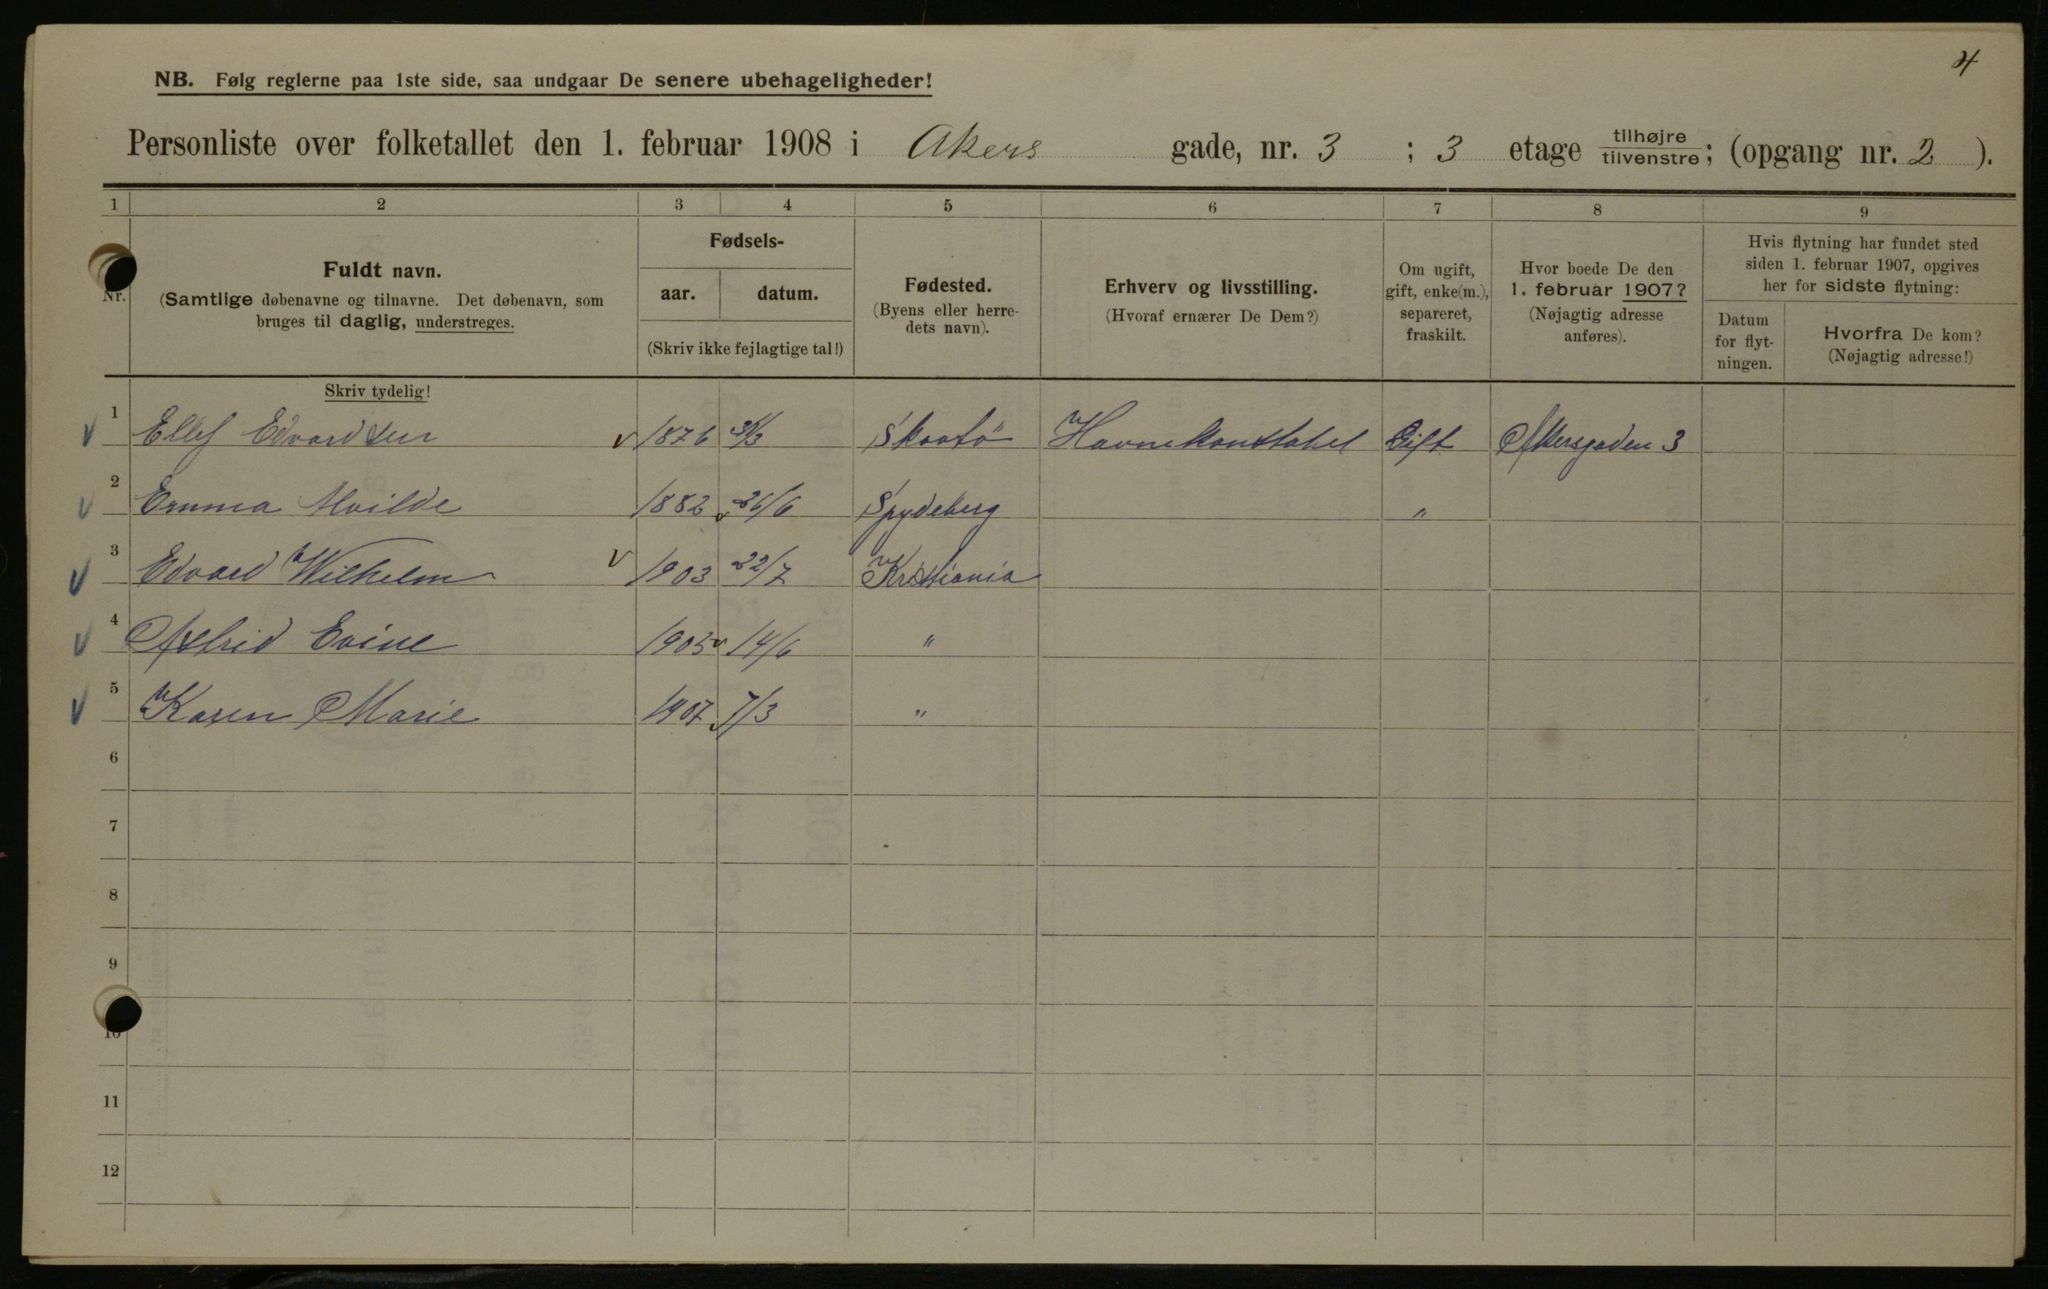 4
NB. Følg reglerne paa 1ste side, saa undgaar De senere ubehageligheder!
Personliste over folketallet den 1. februar 1908 i Akers gade, nr. 3 ; 3 etage tilhøjre tilvenstre; (opgang nr. 2 ).
1 2 3 4 5 6 7 8 9
Nr.
Fuldt navn.
(Samtlige døbenavne og tilnavne. Det døbenavn, som
bruges til daglig, understreges.
Fødsels-
aar. datum.
(Skriv ikke fejlagtige tal!)
Fødested.
(Byens eller herre-
dets navn).
Erhverv og livsstilling.
(Hvoraf ernærer De Dem?)
Om ugift,
gift, enke(m.),
separeret,
fraskilt.
Hvor boede De den
1. februar 1907?
(Nøjagtig adresse
anføres).
Hvis flytning har fundet sted
siden 1. februar 1907, opgives
her for sidste flytning:
Datum
for flyt-
ningen.
Hvorfra De kom?
(Nøjagtig adresse!)
Skriv tydelig!
1 Ellef Edvardsen 1876 Skaatö Havnekonstabel Gift Akersgaden 3
2 Emma Alvilde 1882 26/6 Spydeberg "
3 Edvard Wilhelm 1903 22/7 Kristiania
4 Astrid Evine 1905 14/6 "
5 Karen Marie 1907 7/3 "
6
7
8
9
10
11
12